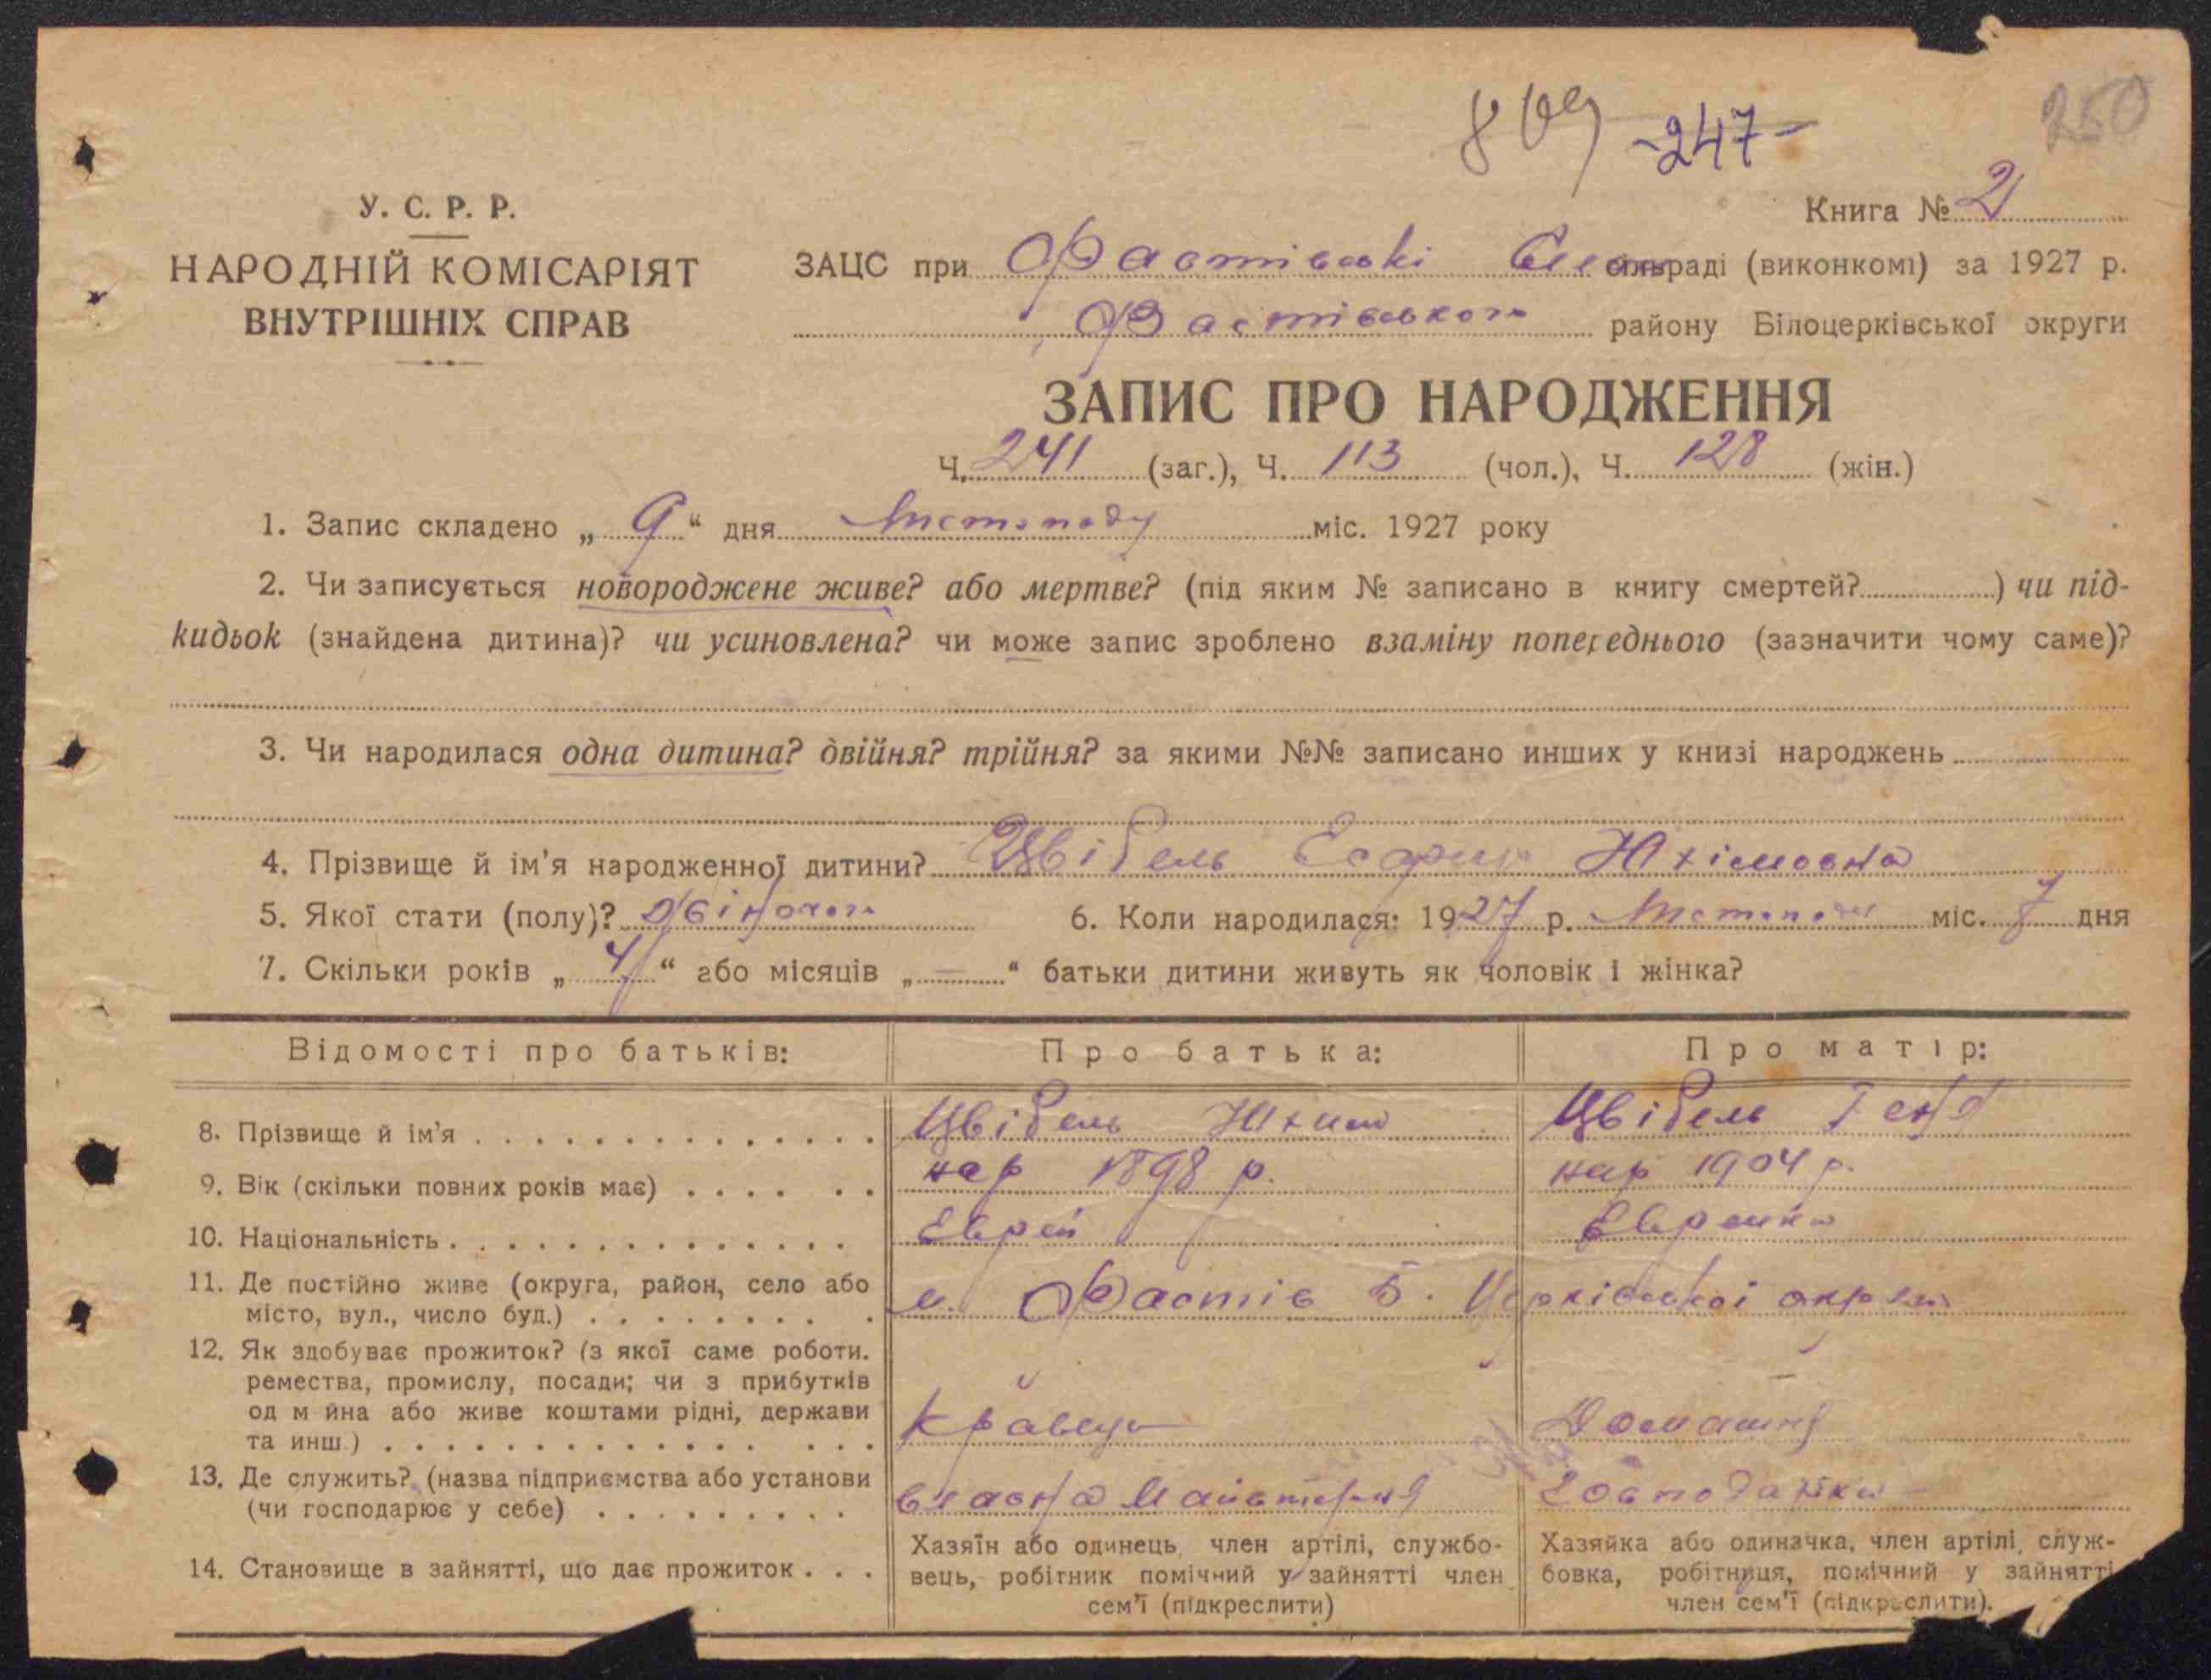 809 -247- 250
У. С. Р. Р.
НАРОДНІЙ КОМІСАРІЯТ
ВНУТРІШНІХ СПРАВ
Книга № 2
ЗАЦС при Фастівські сільраді (виконкомі) за 1927 р.
Фастівського району Білоцерківської округи
ЗАПИС ПРО НАРОДЖЕННЯ
Ч. 241 (заг.), Ч. 113 (чол.), Ч. 128 (жін.)
1. Запис складено „ 9 “ дня Листопаду міс. 1927 року
2. Чи записується новороджене живе? або мертве? (під яким № записано в книгу смертей? ) чи під-
кидьок (знайдена дитина)? чи усиновлена? чи може запис зроблено взаміну попереднього (зазначити чому саме)?
3. Чи народилася одна дитина? двійня? трійня? за якими №№ записано инших у книзі народжень
4. Прізвище й ім’я народженної дитини? Цвібель Юхімовна
5. Якої стати (полу)? Жіночого 6. Коли народилася: 1927 р. Листопаду міс. 7 дня
7. Скільки років „ 4 “ або місяців „ — “ батьки дитини живуть як чоловік і жінка?
Відомості про батьків: Про батька: Про матір:
8. Прізвище й ім’я Цвібель Юхим Цвібель Геня
9. Вік (скільки повних років має) нар 1898 р. нар 1904 р.
10. Національність Єврей Єврейка
11. Де постійно живе (округа, район, село або
місто, вул., число буд.) м. Фастів Б. Церківської округи
12. Як здобуває прожиток? (з якої саме роботи.
ремества, промислу, посади; чи з прибутків
од м йна або живе коштами рідні, держави
та инш.) Кравець Домашня
13. Де служить? (назва підприємства або установи
(чи господарює у себе) власна майстерня Господарка
14. Становище в зайнятті, що дає прожиток
Хазяїн або одинець, член артілі, службо-
вець, робітник помічний у зайнятті член
сем’ї (підкреслити)
Хазяйка або одиначка, член артілі, служ-
бовка, робітниця, помічний у зайнятті
член сем’ї (підкреслити).